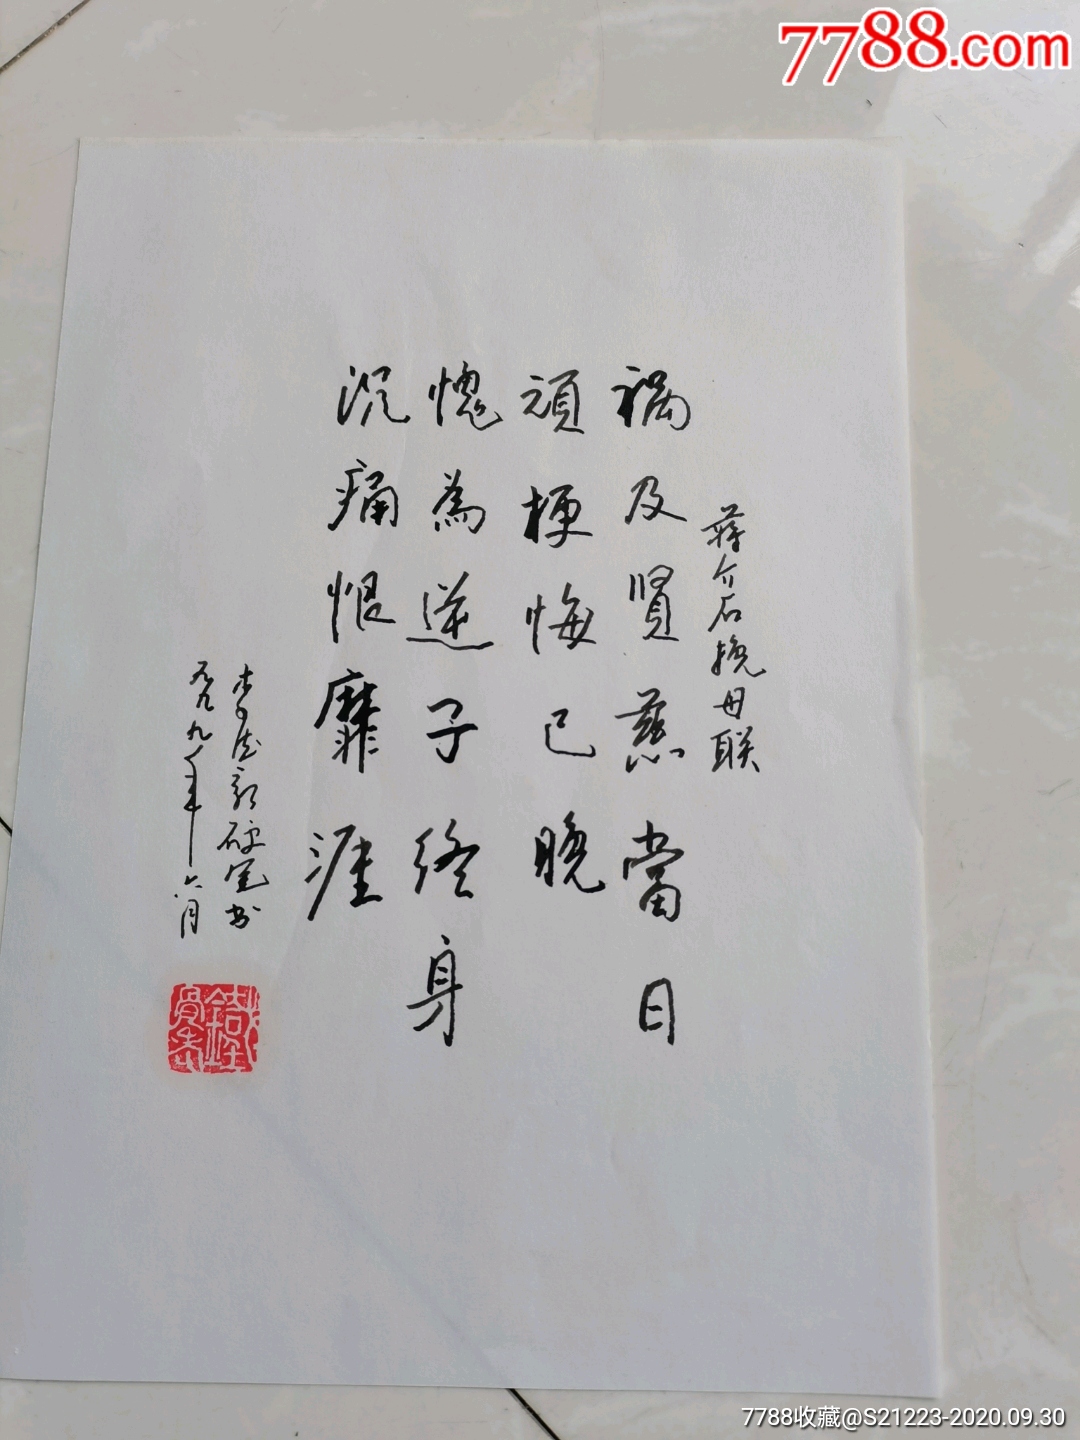 7788.com
蒋介石挽母联
禍及賢慈當日
頑梗悔已晚
愧為逆子終身
沉痛恨靡涯
李德新硬笔书
九九九年六月
7788收藏@S21223-2020.09.30